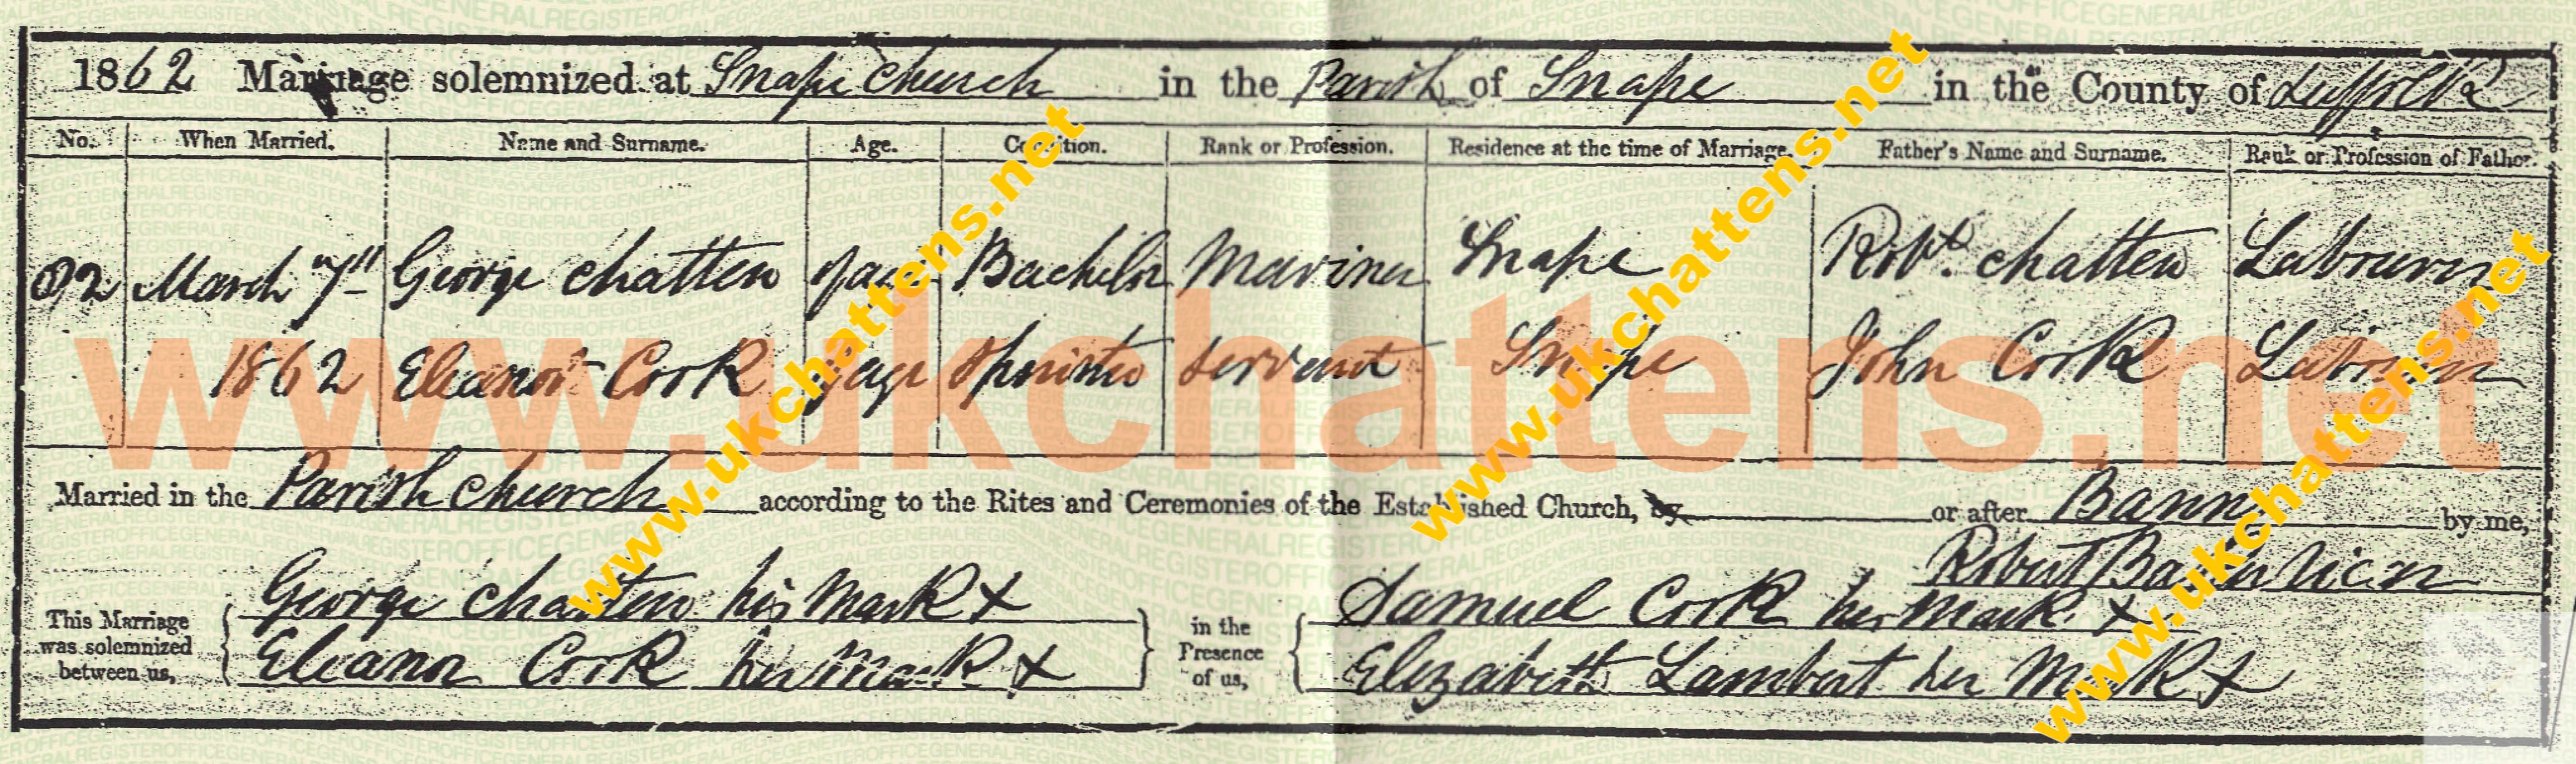 1862 Marriage solemnized at Snape Church in the Parish of Snape in the County of Suffolk
No. When Married. Name and Surname. Age. Condition. Rank or Profession. Residence at the time of Marriage. Father's Name and Surname. Rank or Profession of Father.
92 March 7th George Chatten of age Bachelor Mariner Snape Robt. Chatten Labourer
1862 Eleanor Cook of age Spinster Servant Snape John Cook Labourer
www.ukchattens.net
Married in the Parish Church according to the Rites and Ceremonies of the Established Church, by or after Banns by me,
Robert
This Marriage was solemnized between us, George Chatten his Mark X in the Presence of us, Samuel Cook her Mark X
Eleanor Cook her Mark X Elizabeth Lambert her Mark X
www.ukchattens.net
www.ukchattens.net
www.ukchattens.net